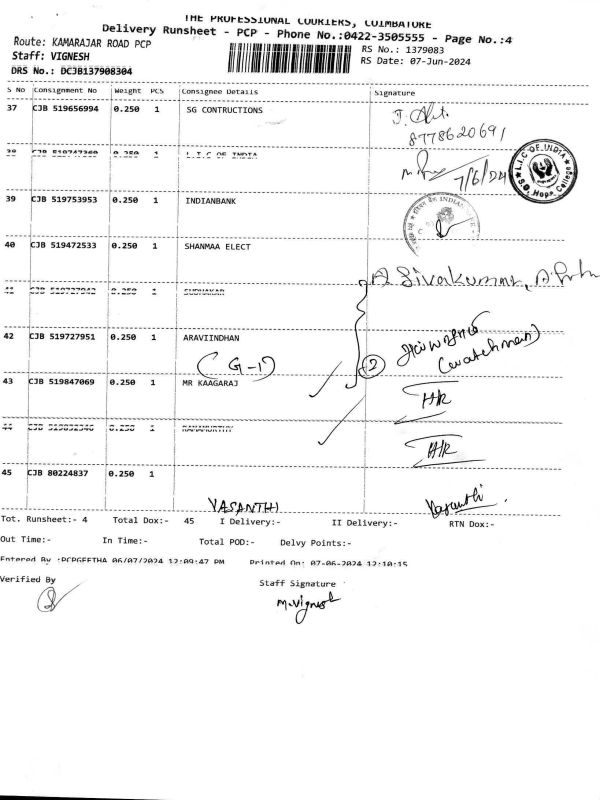 THE PROFESSIONAL COURIERS, COIMBATORE
Delivery Runsheet - PCP - Phone No.:0422-3505555 - Page No.:4
Route: KAMARAJAR ROAD PCP
RS No.: 1379083
Staff: VIGNESH
RS Date: 07-Jun-2024
DRS No.: DCJB137908304
S No Consignment No Weight PCS Consignee Details Signature
37 CJB 519656994 0.250 1 SG CONTRUCTIONS
8778620691
38 CJB 0.250 1 L.I C OF INDIA
7/6/24
L.I.C OF INDIA
S.O. Hope College
39 CJB 519753953 0.250 1 INDIANBANK
40 CJB 519472533 0.250 1 SHANMAA ELECT
A Sivakumar,
41 CJB 0.250 1 SUDHAKAR
42 CJB 519727951 0.250 1 ARAVIINDHAN
(G-1) 2 (watchman)
43 CJB 519847069 0.250 1 MR KAAGARAJ
44 CJB 0.250 1 RAMAMURTHY
45 CJB 80224837 0.250 1
VASANTHI Vasanthi
Tot. Runsheet:- 4 Total Dox:- 45 I Delivery:- II Delivery:- RTN Dox:-
Out Time:- In Time:- Total POD:- Delvy Points:-
Entered By :PCPGEETHA 06/07/2024 12:09:47 PM Printed On: 07-06-2024 12:10:15
Verified By Staff Signature
M.Vignesh